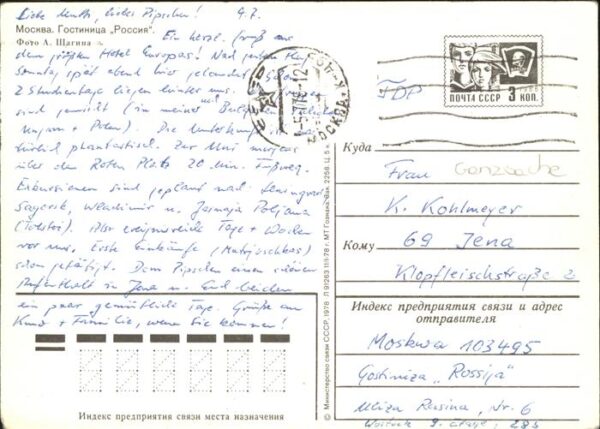 Liebe Mutti, liebes Pipschen! 4.7.
Москва. Гостиница „Россия".
Фото А. Шагина
Ein herzl. Gruß aus
dem größten Hotel Europas! Nach
Sonntag, spät abend hier gelandet.
2 Studientage liegen hinter uns.
sind gemischt (in meiner mit
Ungarn + Polen). Die Unterkunft ist
wirklich phantastisch. Zur Uni morgens
über den Roten Platz 20 Min. Fußweg.
Exkursionen sind geplant nach Leningrad
Sagorsk, Wladimir u. Jasnaja Poljana
(Tolstoi). Also ereignisreiche Tage + Wochen
vor uns. Erste Einkäufe (Matrjoschkas)
schon getätigt. Dem Pipschen einen schönen
Aufenthalt in Jena u. Euch beiden
ein paar gemütliche Tage. Grüße an
+ Familie, wenn Sie kommen!
МОСКВА
ПОЧТА СССР 3 КОП.
Куда
Frau
K. Kohlmeyer
Кому 69 Jena
Klopfleischstraße 2
Индекс предприятия связи и адрес
отправителя
Moskwa 103495
Gostiniza „Rossija"
Uliza Rasina, Nr. 6
Wostok 9. etage, 285
Индекс предприятия связи места назначения
© Министерство связи СССР, 1978